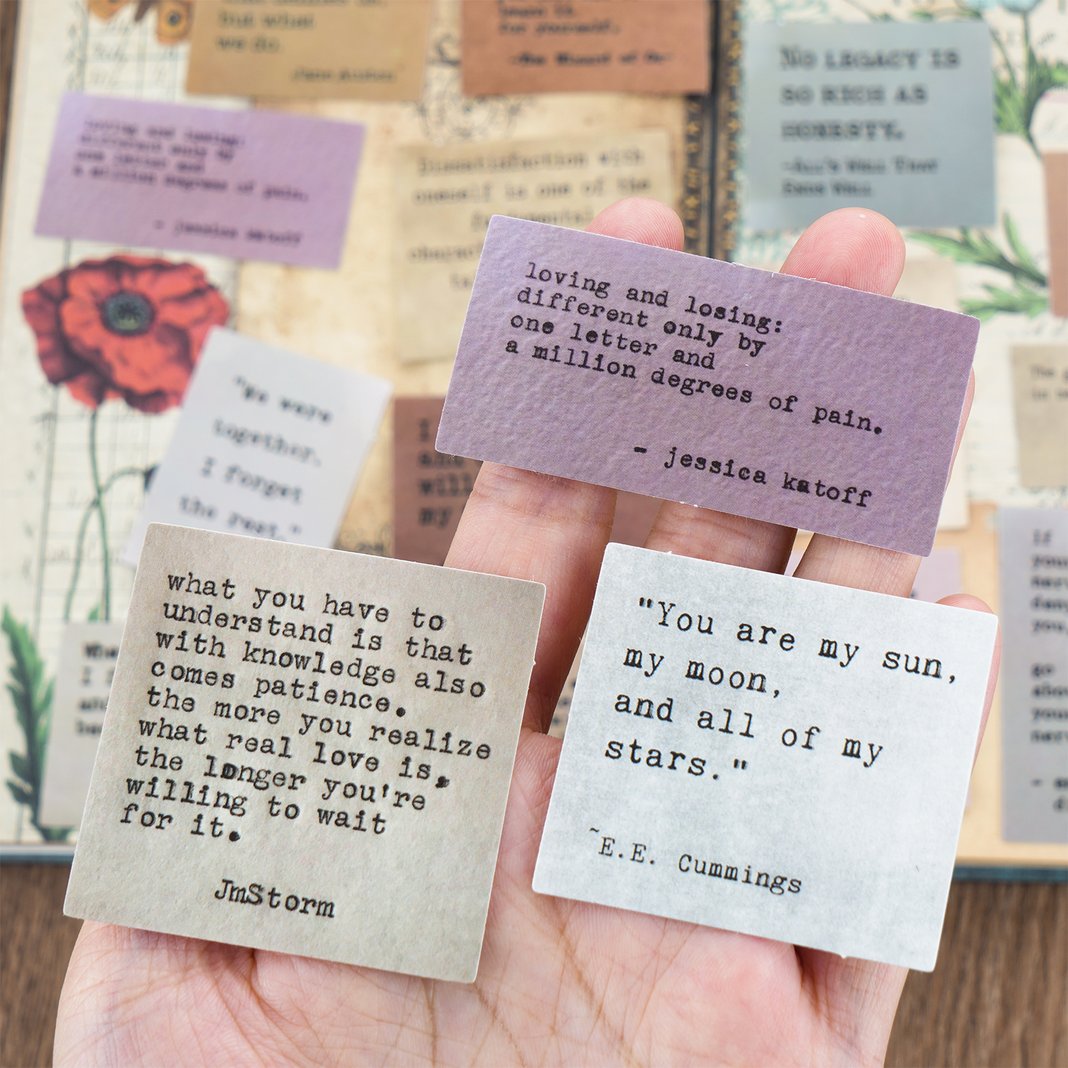 But what
we do.
~Jane Austen
for yourself.
No LEGACY IS
SO RICH AS
HONESTY.
~ALL'S WELL THAT
ENDS WELL
loving and losing:
different only by
one letter and
a million degrees of pain.
- jessica katoff
Dissatisfaction with
oneself is one of the
"We were
together.
I forget
the rest."
loving and losing:
different only by
one letter and
a million degrees of pain.
- jessica katoff
what you have to
understand is that
with knowledge also
comes patience.
the more you realize
what real love is,
the longer you're
willing to wait
for it.
JmStorm
"You are my sun,
my moon,
and all of my
stars."
~E.E. Cummings
I
and
will
my
If
you
go